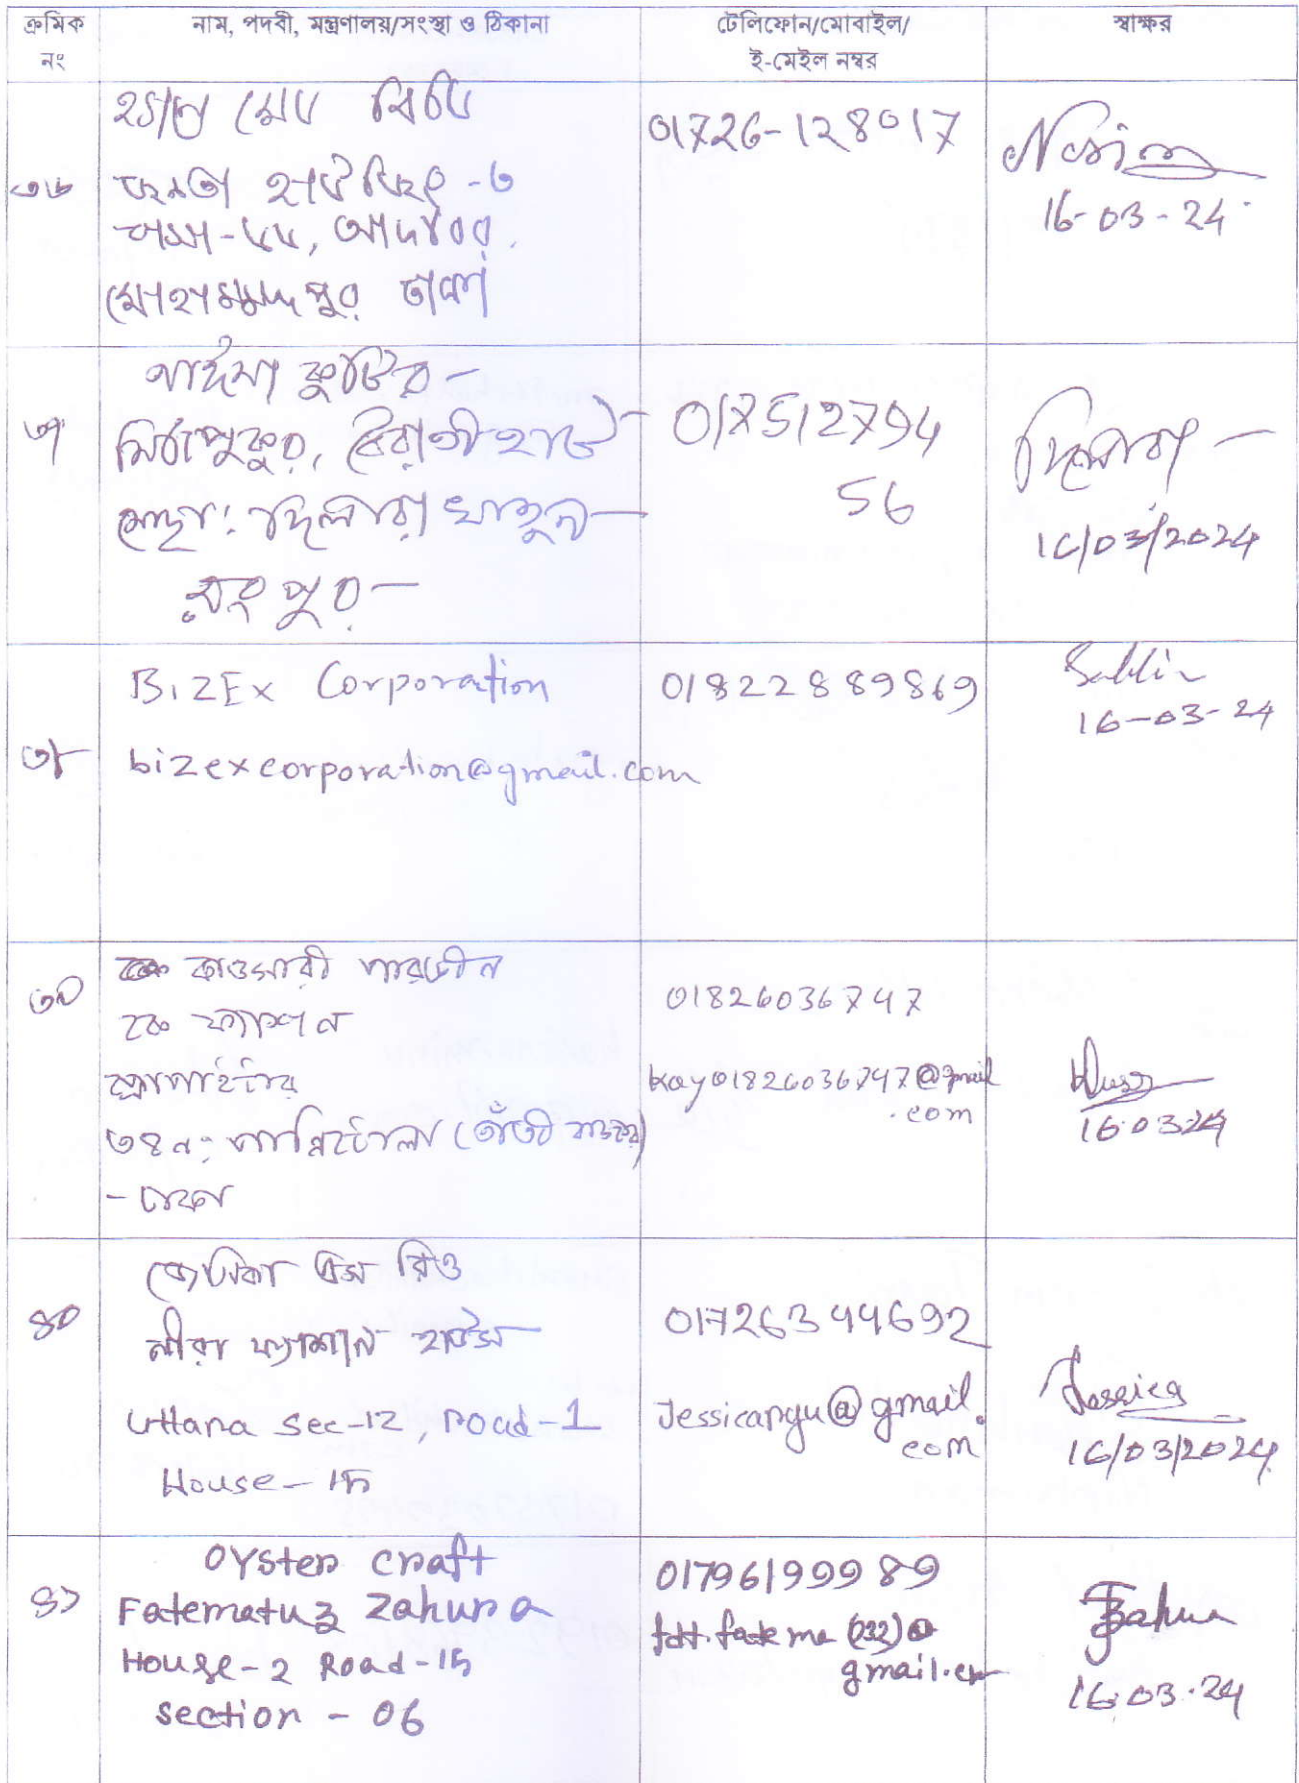 ক্রমিক
নং
নাম, পদবী, মন্ত্রণালয়/সংস্থা ও ঠিকানা
টেলিফোন/মোবাইল/
ই-মেইল নম্বর
স্বাক্ষর
৩৬
হাউজিং -৩
বাসা- আদাবর,
মোহাম্মদপুর ঢাকা
01726-128017
Nasim
16-03-24
৩৭
কুটির-
মিঠাপুকুর, বৈরাতীহাট
মোছা: দিলারা খাতুন-
রংপুর-
017512794
56
দিলারা-
16/03/2024
৩৮
BIZEx Corporation
bizexcorporation@gmail.com
01822889869
16-03-24
৩৯
কাওসারী পারভীন
কে ফ্যাশন
প্রোপাইটার
৩৪ নং পান্নিটোলা (তাঁতী বাজার)
- ঢাকা
01826036747
kay01826036747@gmail
.com
16.03.24
৪০
জেসিকা এম রিও
নীরা ফ্যাশান হাউস
Uttara Sec-12, road-1
House-15
01726344692
Jessicargu@gmail.
com
Jessica
16/03/2024
৪১
Oyster craft
Fatematuz Zahura
House-2 Road-15
section - 06
01796199989
gmail.com
Zahura
16.03.24